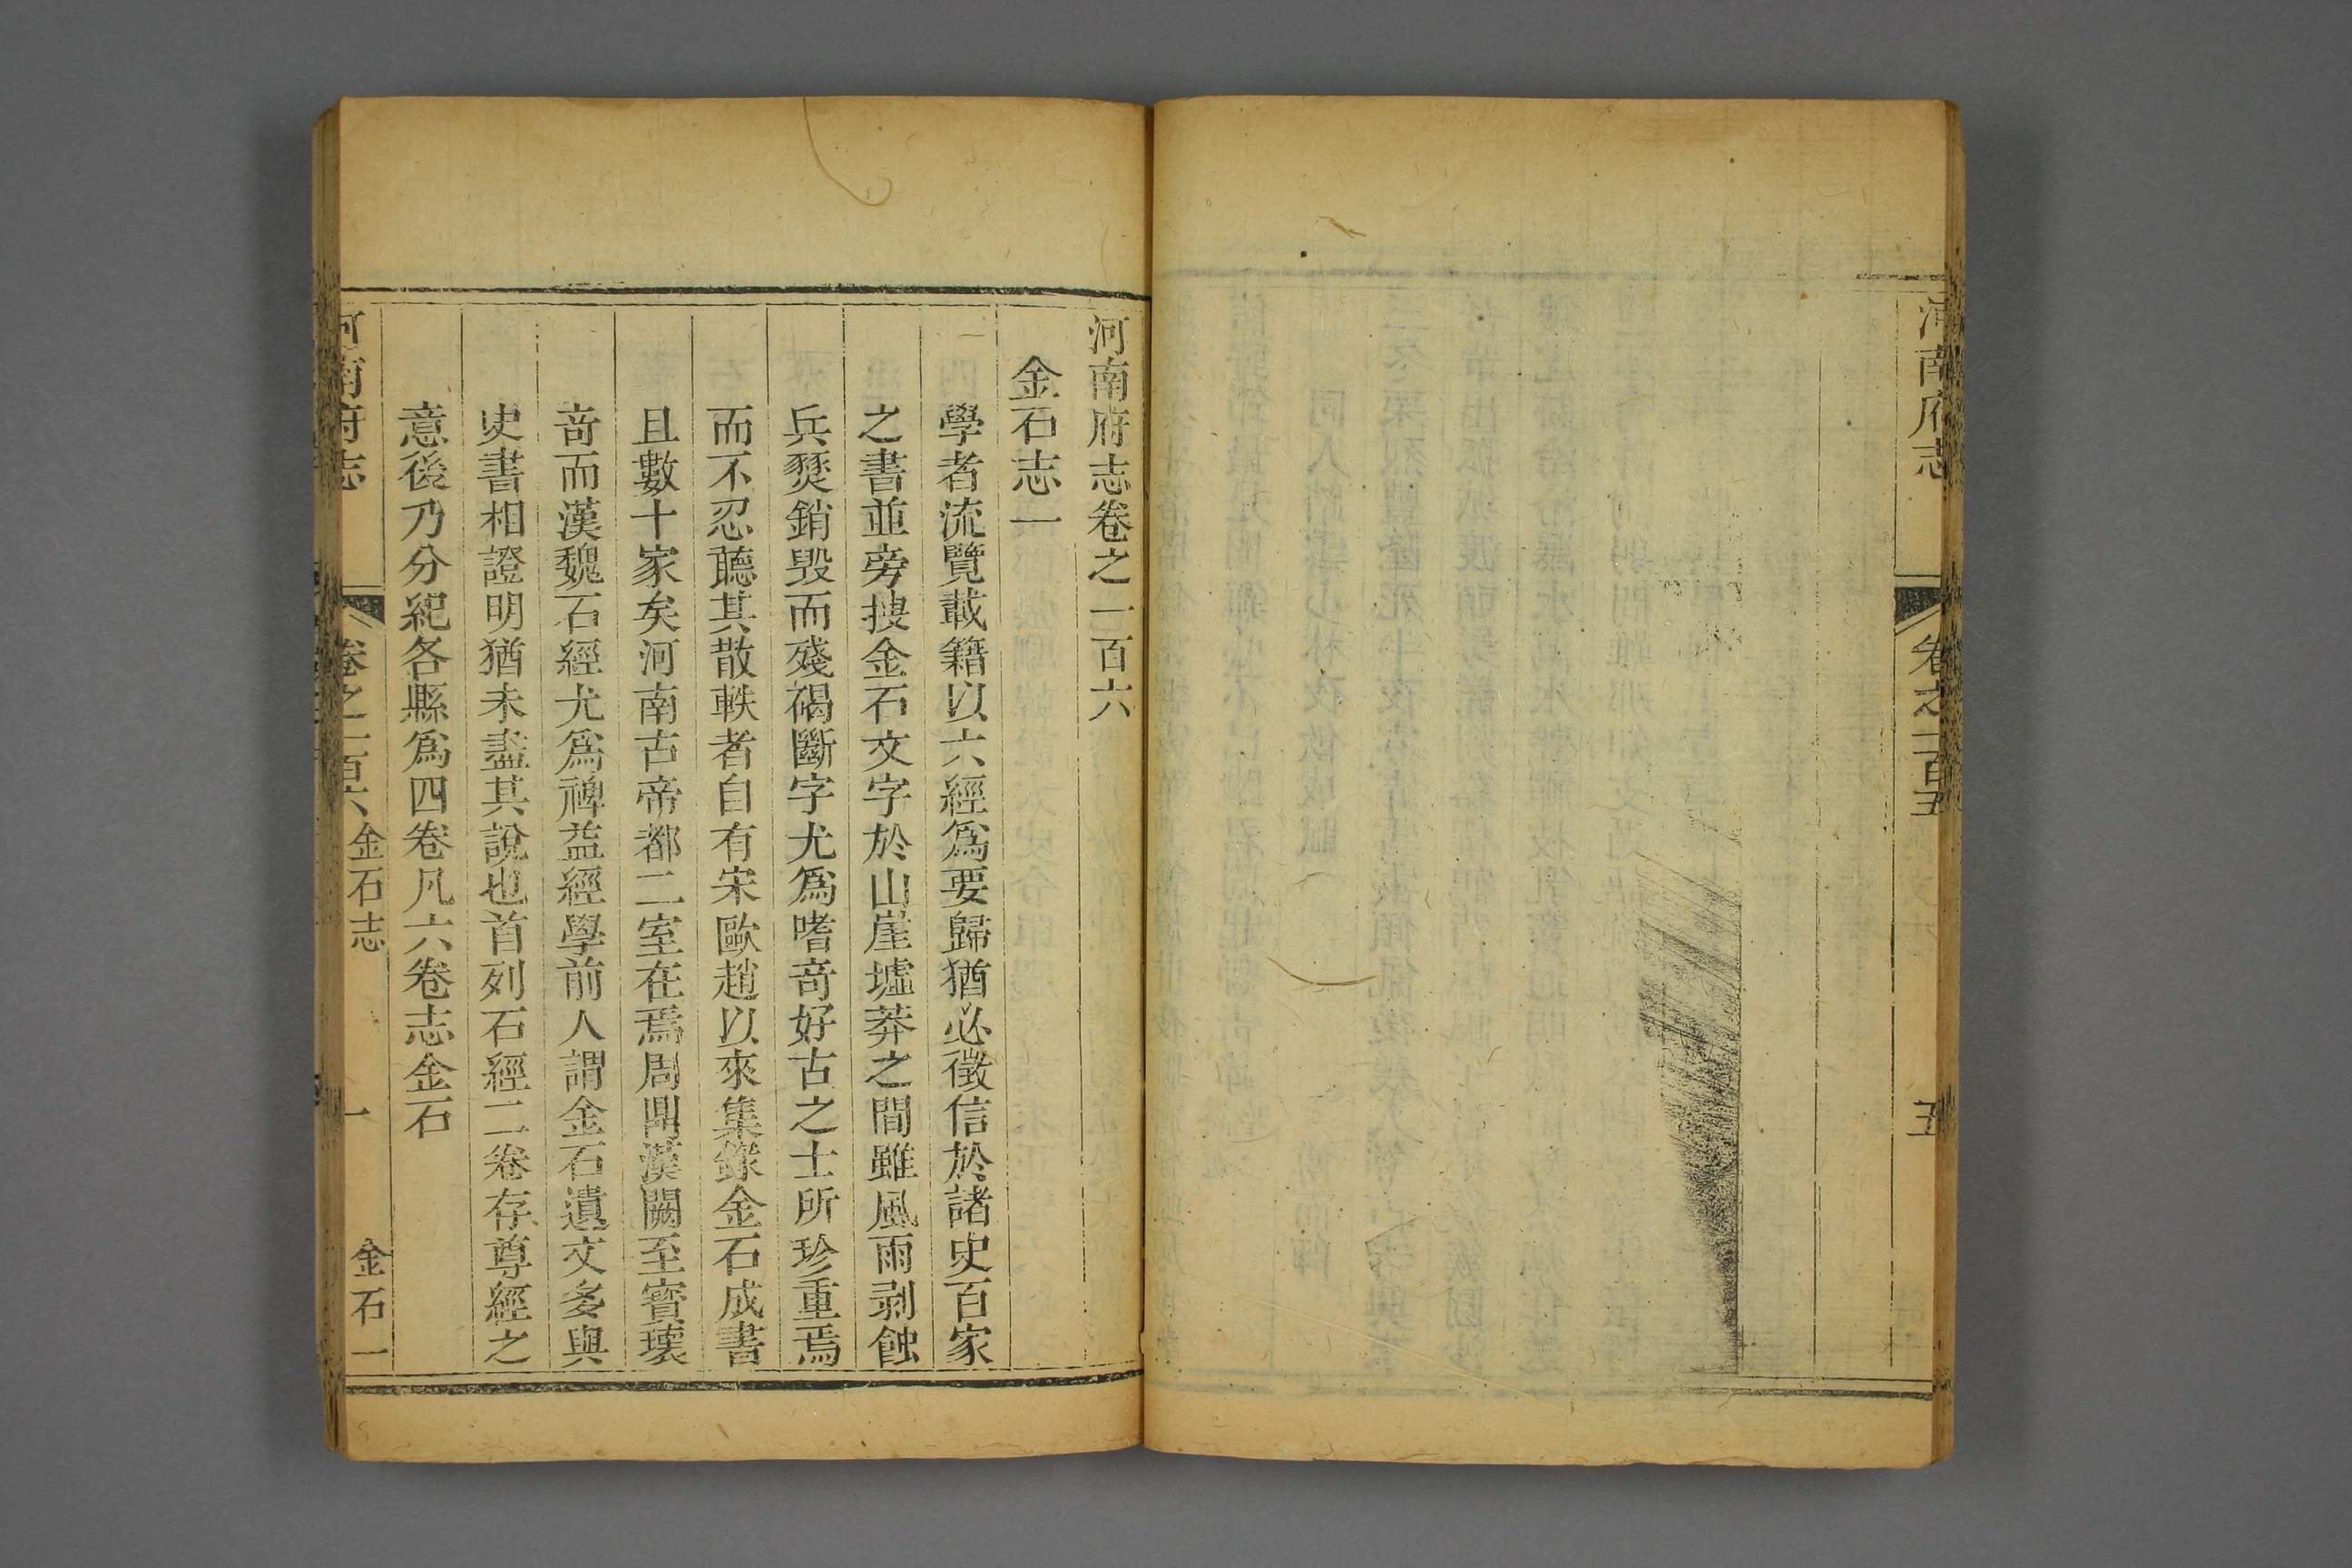 河南府志
卷之一百五
五
河南府志卷之一百六
金石志一
學者流覽載籍以六經爲要歸猶必徵信於諸史百家
之書並旁搜金石文字於山崖墟莽之間雖風雨剥蝕
兵燹銷毀而殘碣斷字尤爲嗜竒好古之士所珍重焉
而不忍聽其散軼者自有宋歐趙以來集錄金石成書
且數十家矣河南古帝都二室在焉周鼎漢闕至寳壊
竒而漢魏石經尤爲裨益經學前人謂金石遺文多與
史書相證明猶未盡其說也首列石經二卷存尊經之
意後乃分紀各縣爲四卷凡六卷志金石
河南府志
卷之一百六
金石志
一
金石一